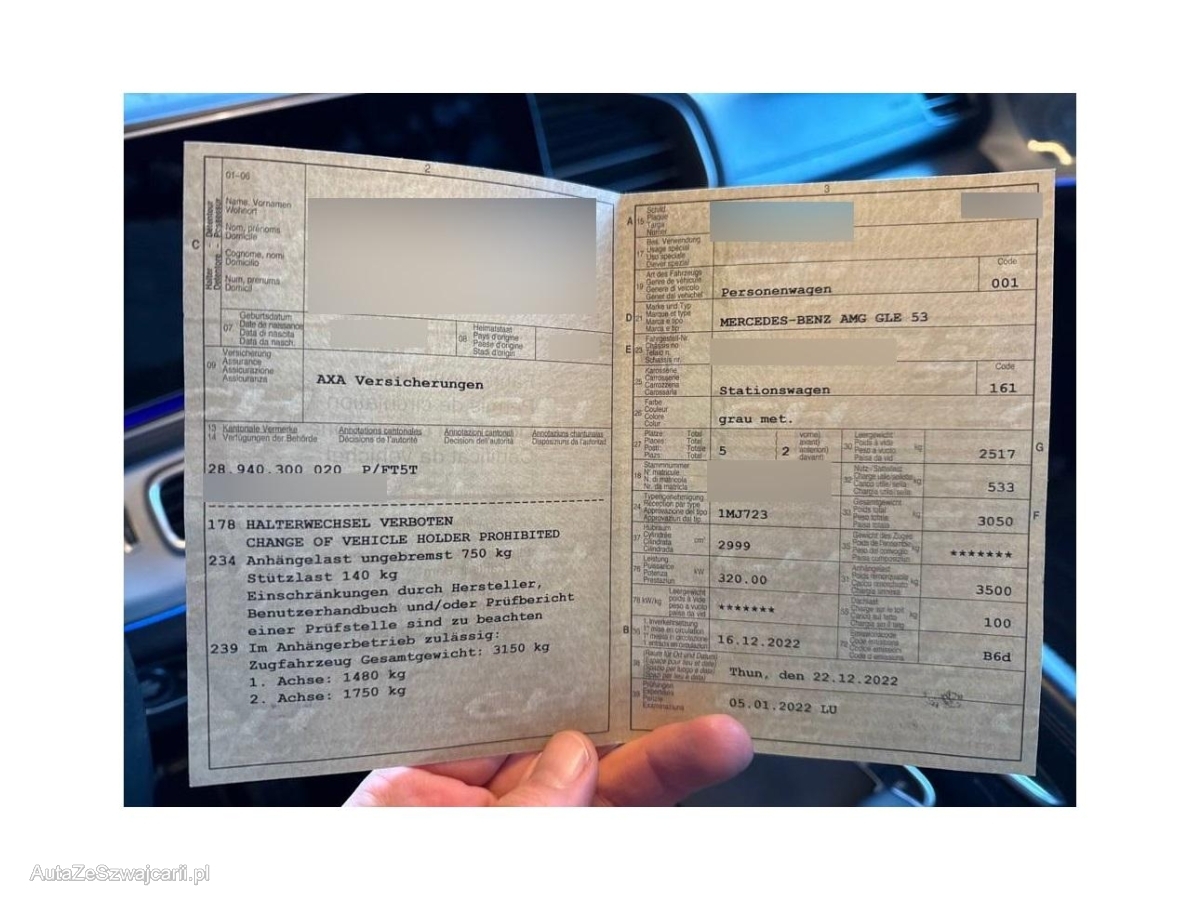 2
01-06
Name, Vornamen
Wohnort
Nom, prénoms
Domicile
Cognome, nomi
Domicilio
Num, prenums
Domicil
C
07
Geburtsdatum
Date de naissance
Data di nascita
Data da nasch.
08
Heimatstaat
Pays d'origine
Paese d'origine
Stadi d'origin
09
Versicherung
Assurance
Assicurazione
Assicuranza
AXA Versicherungen
13
14
Kantonale Vermerke
Verfügungen der Behörde
Annotations cantonales
Décisions de l'autorité
Annotazioni cantonali
Decisioni dell'autorità
Annotaziuns chantunalas
Disposiziuns da l'autoritad
28.940.300 020 P/FT5T
178 HALTERWECHSEL VERBOTEN
CHANGE OF VEHICLE HOLDER PROHIBITED
234 Anhängelast ungebremst 750 kg
Stützlast 140 kg
Einschränkungen durch Hersteller,
Benutzerhandbuch und/oder Prüfbericht
einer Prüfstelle sind zu beachten
239 Im Anhängerbetrieb zulässig:
Zugfahrzeug Gesamtgewicht: 3150 kg
1. Achse: 1480 kg
2. Achse: 1750 kg
3
A 15 Schild
Plaque
Targa
Numer
17 Bes. Verwendung
Usage spécial
Uso speciale
Diever spezial
19 Art des Fahrzeugs
Genre de véhicule
Genere di veicolo
Gener dal vehichel
Personenwagen
Code
001
D 21 Marke und Typ
Marque et type
Marca e tipo
Marca e tip
MERCEDES-BENZ AMG GLE 53
E 23 Fahrgestell-Nr.
Châssis no
Telaio n.
Schassis nr.
25 Karosserie
Carrosserie
Carrozzeria
Carossaria
Stationswagen
Code
161
26 Farbe
Couleur
Colore
Colur
grau met.
27 Plätze Total
Places Total
Posti: Totale
Plazs: Total
5
2
vorne)
avant)
anteriori)
davant)
30 Leergewicht
Poids à vide
Peso a vuoto
Paisa da vid
kg
2517
G
18 Stammnummer
N° matricule
N. di matricola
Nr. da matricla
32 Nutz-/Sattellast
Charge utile/sellette
Carico utile/sella
Chargia utila/sella
kg
533
24 Typengenehmigung
Réception par type
Approvazione del tipo
Approvaziun dal tip
1MJ723
33 Gesamtgewicht
Poids total
Peso totale
Paisa totala
kg
3050
F
37 Hubraum
Cylindrée
Cilindrata
Cilindrada
cm³
2999
35 Gewicht des Zuges
Poids de l'ensemble
Peso del convoglio
Paisa cumposiziun
kg
*******
76 Leistung
Puissance
Potenza
Prestaziun
kW
320.00
31 Anhängelast
Poids remorquable
Carico rimorchiato
Chargia annexa
kg
3500
78 kW/kg
Leergewicht
poids à vide
peso a vuoto
paisa da vid
*******
55 Dachlast
Charge sur le toit
Carico sul tetto
Chargia sin il tetg
kg
100
B 36 1. Inverkehrsetzung
1re mise en circulation
1a messa in circolazione
1. entrada en circulaziun
16.12.2022
72 Emissionscode
Code émissions
Codice emissioni
Code d'emissiuns
B6d
38 (Raum für Ort und Datum)
(Espace pour lieu et date)
(Spazio per luogo e data)
(Spazi per lieu e data)
Thun, den 22.12.2022
39 Prüfungen
Expertises
Perizie
Examinaziuns
05.01.2022 LU
AutaZeSzwajcarii.pl